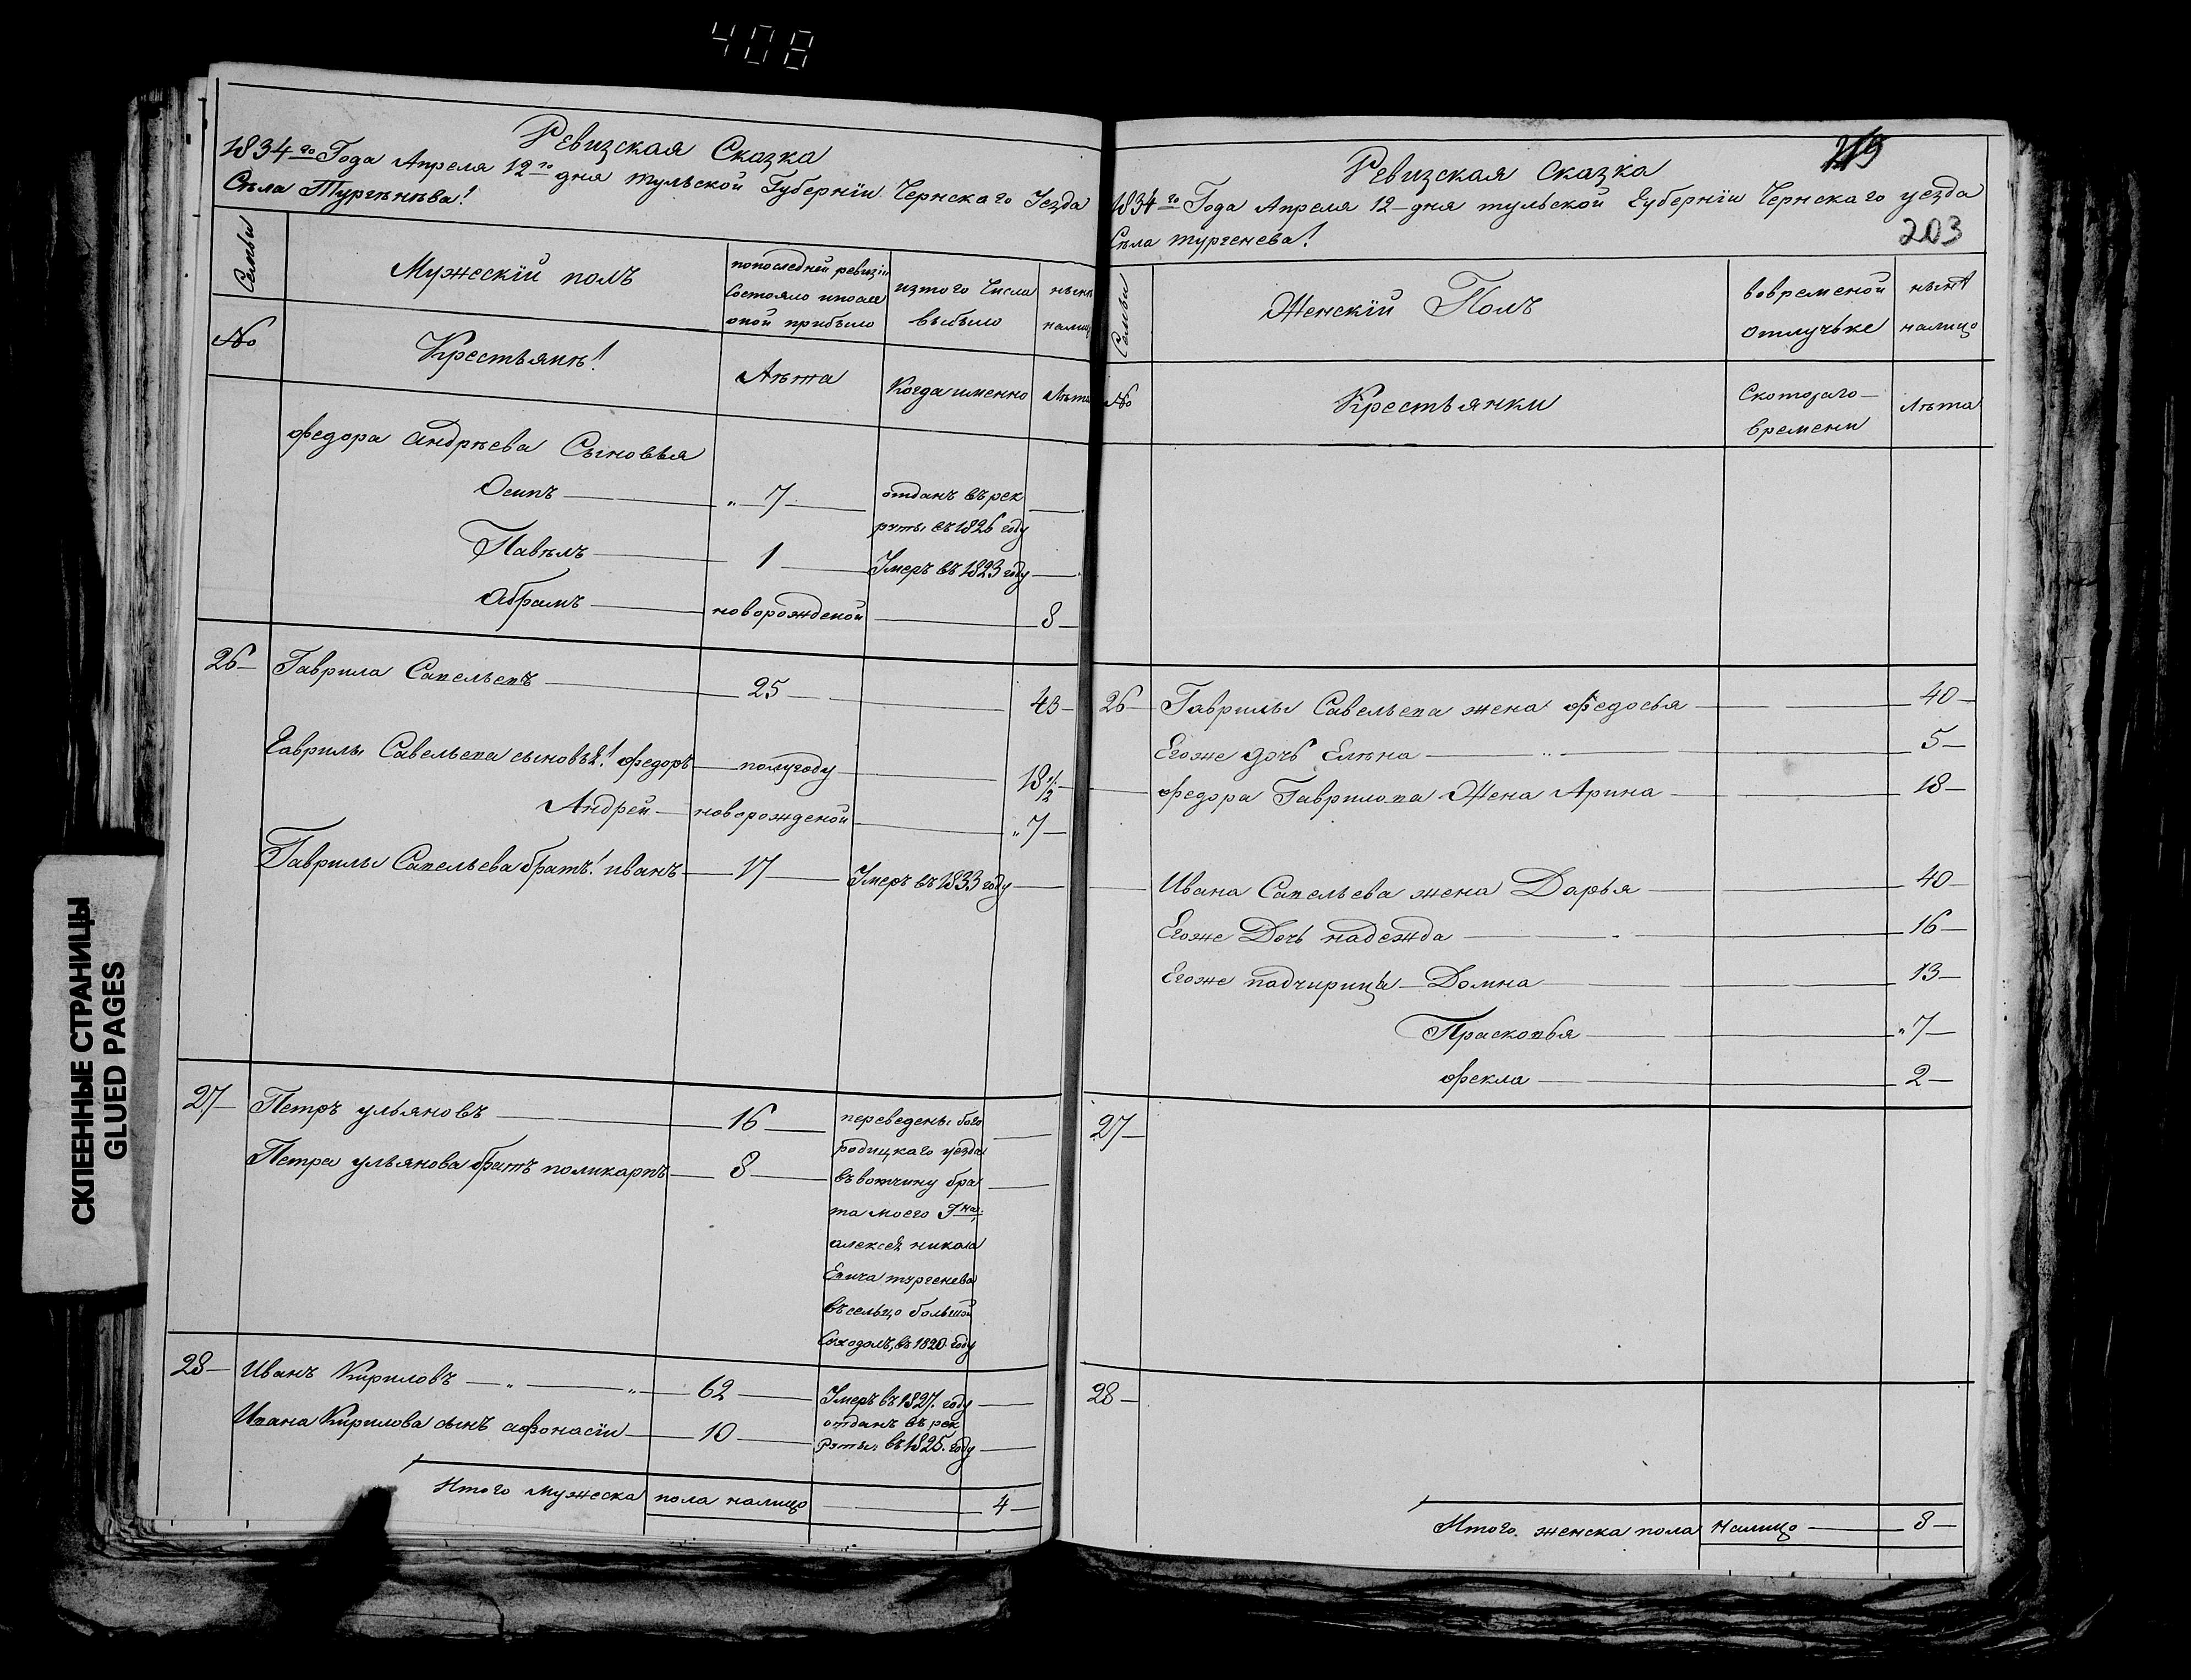 408
Ревизская Сказка
1834го Года Апреля 12го дня тульской Губернїи Чернскаго Уезда
Села Тургѣнѣва!
Семьи
Мужескїй полъ
попоследней ревизіи
Состояло ипосли
оной прибыло
изтого Числа
выбыло
нынѣ
налицо
№
Крестьянѣ!
Лѣта
Когда именно
Лѣта
Федора андрѣева Сыновья
Осипъ — „ 7 — отданъ въ рек
руты въ 1826 году
Павѣлъ — 1 — Умеръ въ 1823 году
Абрамъ — новорожденой — 8
26 — Гаврила Савельевъ — 25 — 43
Гаврилы Савельева сыновья! Федоръ — полугоду — 18 1/2
Андрей — новорожденой — „ 7
Гаврилы Савельева братъ! иванъ — 17 — Умеръ въ 1833 году
27 — Петръ ульяновъ — 16 — переведены бого
родицкаго уезда
Петра ульянова братъ поликарпъ — 8 — въ вотчину бра
та моего Гна:
алексея никола
Евича тургенева
въ сельцо большой
Сходолъ, въ 1820 году
28 — Иванъ Кириловъ — „ — „ — 62 — Умеръ въ 1827. году
Ивана Кирилова сынъ афонасїи — 10 — отданъ въ рек
руты: въ 1825. году
Итого мужеска пола налицо — 4
203
Ревизская Сказка
1834го Года Апреля 12 — дня тульской Губернїи Чернскаго уезда
Села тургенева!
Семьи
Женскїй Полъ
вовременой
отлучьке
нынѣ
налицо
№
Крестьянки
Скотораго —
времени
Лѣта
26 — Гаврилы Савельева жена Федосья — 40
Егоже дочь Елѣна — 5
Федора Гаврилова Жена Арина — 18
Ивана Савельева жена Дарья — 40
Егоже Дочь надежда — 16
Егоже падчирицы — Домна — 13
Прасковья — „ 7
Фекла — 2
27 —
28 —
Итого женска пола налицо — 8
СКЛЕЕННЫЕ СТРАНИЦЫ
GLUED PAGES